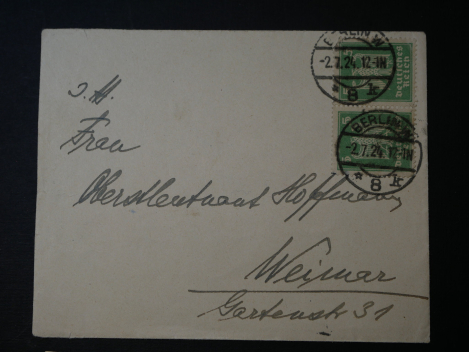 BERLIN.W
-2.7.24.12-1N
* 8 k
Deutsches
Reich
BERLIN.W
-2.7.24.12-1N
* 8 k
Frau
Oberstleutnant Hoffmann
Weimar
Gartenstr 31